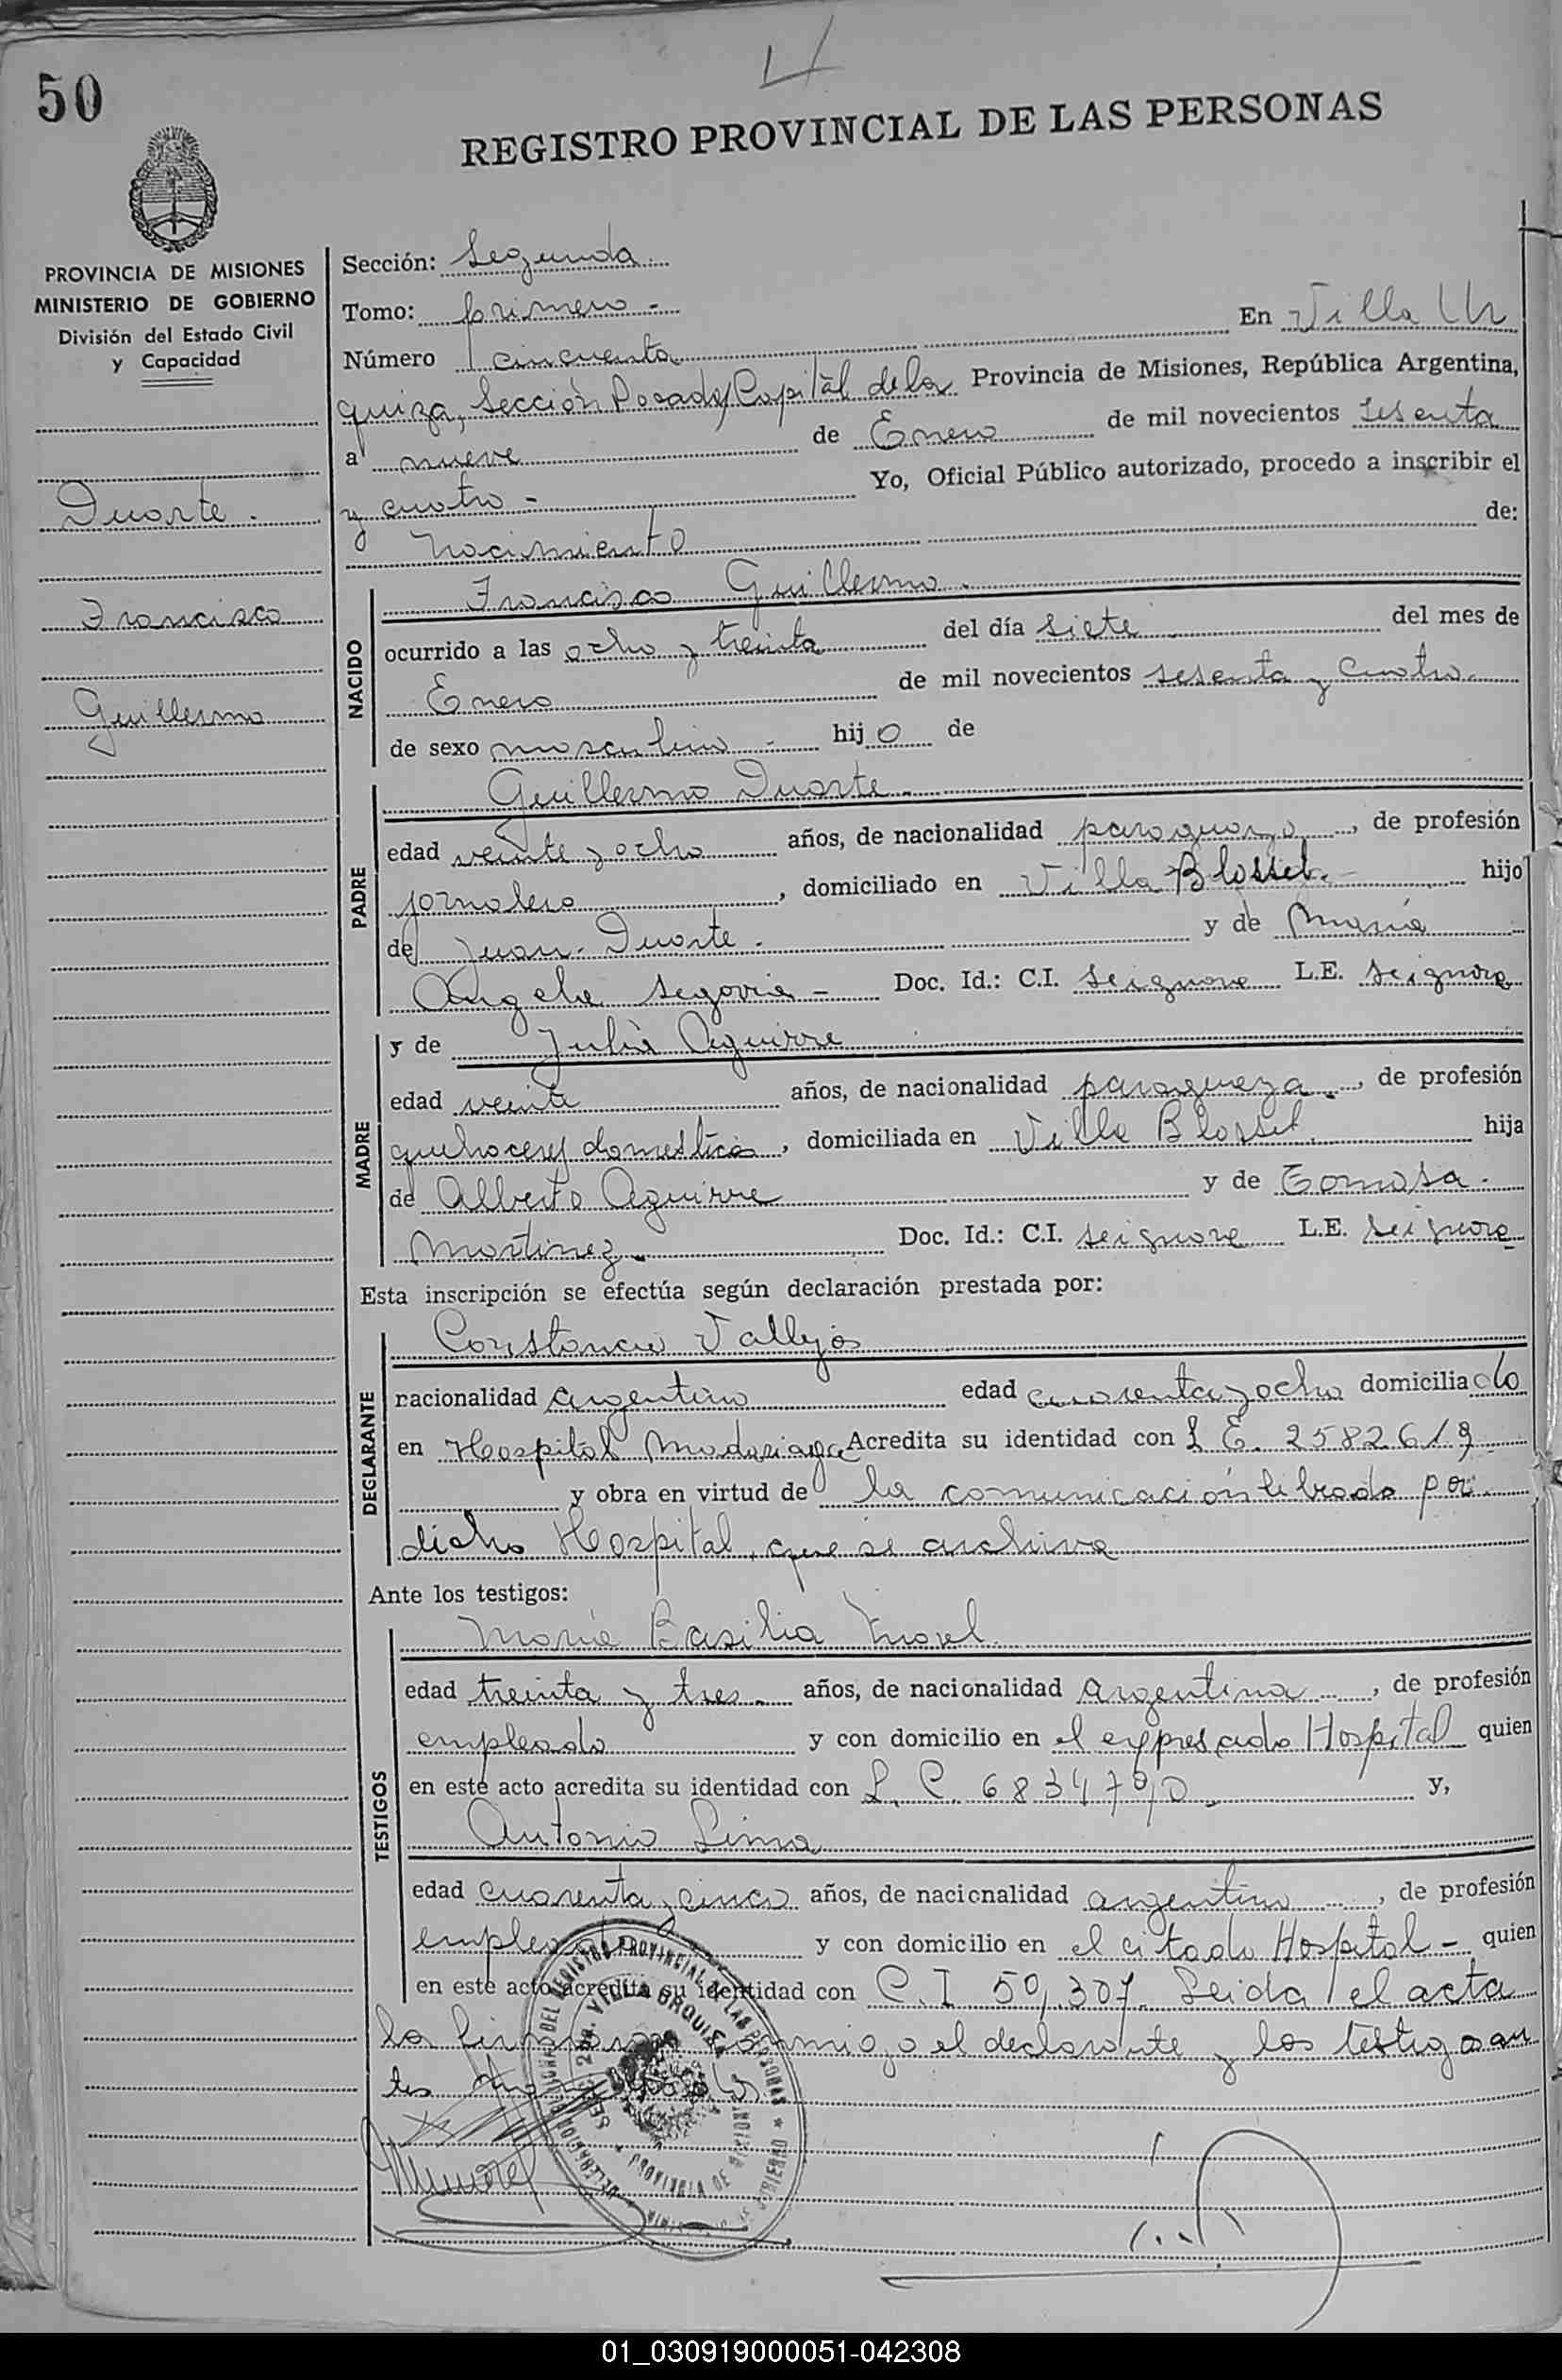 50
REGISTRO PROVINCIAL DE LAS PERSONAS
PROVINCIA DE MISIONES
MINISTERIO DE GOBIERNO
División del Estado Civil
y Capacidad
Duarte.
Francisco
Guillermo
Sección: Segunda
Tomo: primero -
Número cincuenta En Villa Ur
quiza, Sección Posadas Capital de la Provincia de Misiones, República Argentina,
a nueve de Enero de mil novecientos sesenta
y cuatro - Yo, Oficial Público autorizado, procedo a inscribir el
Nacimiento de:
NACIDO
Francisco Guillermo.
ocurrido a las ocho y treinta del día siete del mes de
Enero de mil novecientos sesenta y cuatro
de sexo masculino - hijo de
PADRE
Guillermo Duarte.
edad veinte y ocho años, de nacionalidad paraguayo, de profesión
jornalero, domiciliado en Villa Blosset. hijo
de Juan Duarte. y de María
Angela Segovia - Doc. Id.: C.I. se ignora L.E. se ignora
MADRE
y de Julia Aguirre
edad veinte años, de nacionalidad paraguaya, de profesión
quehaceres domesticos, domiciliada en Villa Blosset hija
de Alberto Aguirre y de Tomasa.
Martinez Doc. Id.: C.I. se ignora L.E. se ignora
Esta inscripción se efectúa según declaración prestada por:
DECLARANTE
Constancio Vallejos
nacionalidad argentino edad cuarenta y ocho domiciliado
en Hospital Madariaga Acredita su identidad con L E. 2582619
y obra en virtud de la comunicación librada por
dicho Hospital, que se archiva
Ante los testigos:
TESTIGOS
María Basilia
edad treinta y tres años, de nacionalidad Argentina, de profesión
empleada y con domicilio en el expresado Hospital quien
en este acto acredita su identidad con L. C. 6834790 y,
Antonio Lima
edad cuarenta y cinco años, de nacionalidad argentino, de profesión
empleado y con domicilio en el citado Hospital - quien
en este acto acredita su identidad con C. I 50,307. Leida el acta
la firmaron conmigo el declarante y los testigos an
tes
SECC. 2da. VILLA URQUIZA
PROVINCIA DE MISIONES
01_030919000051-042308